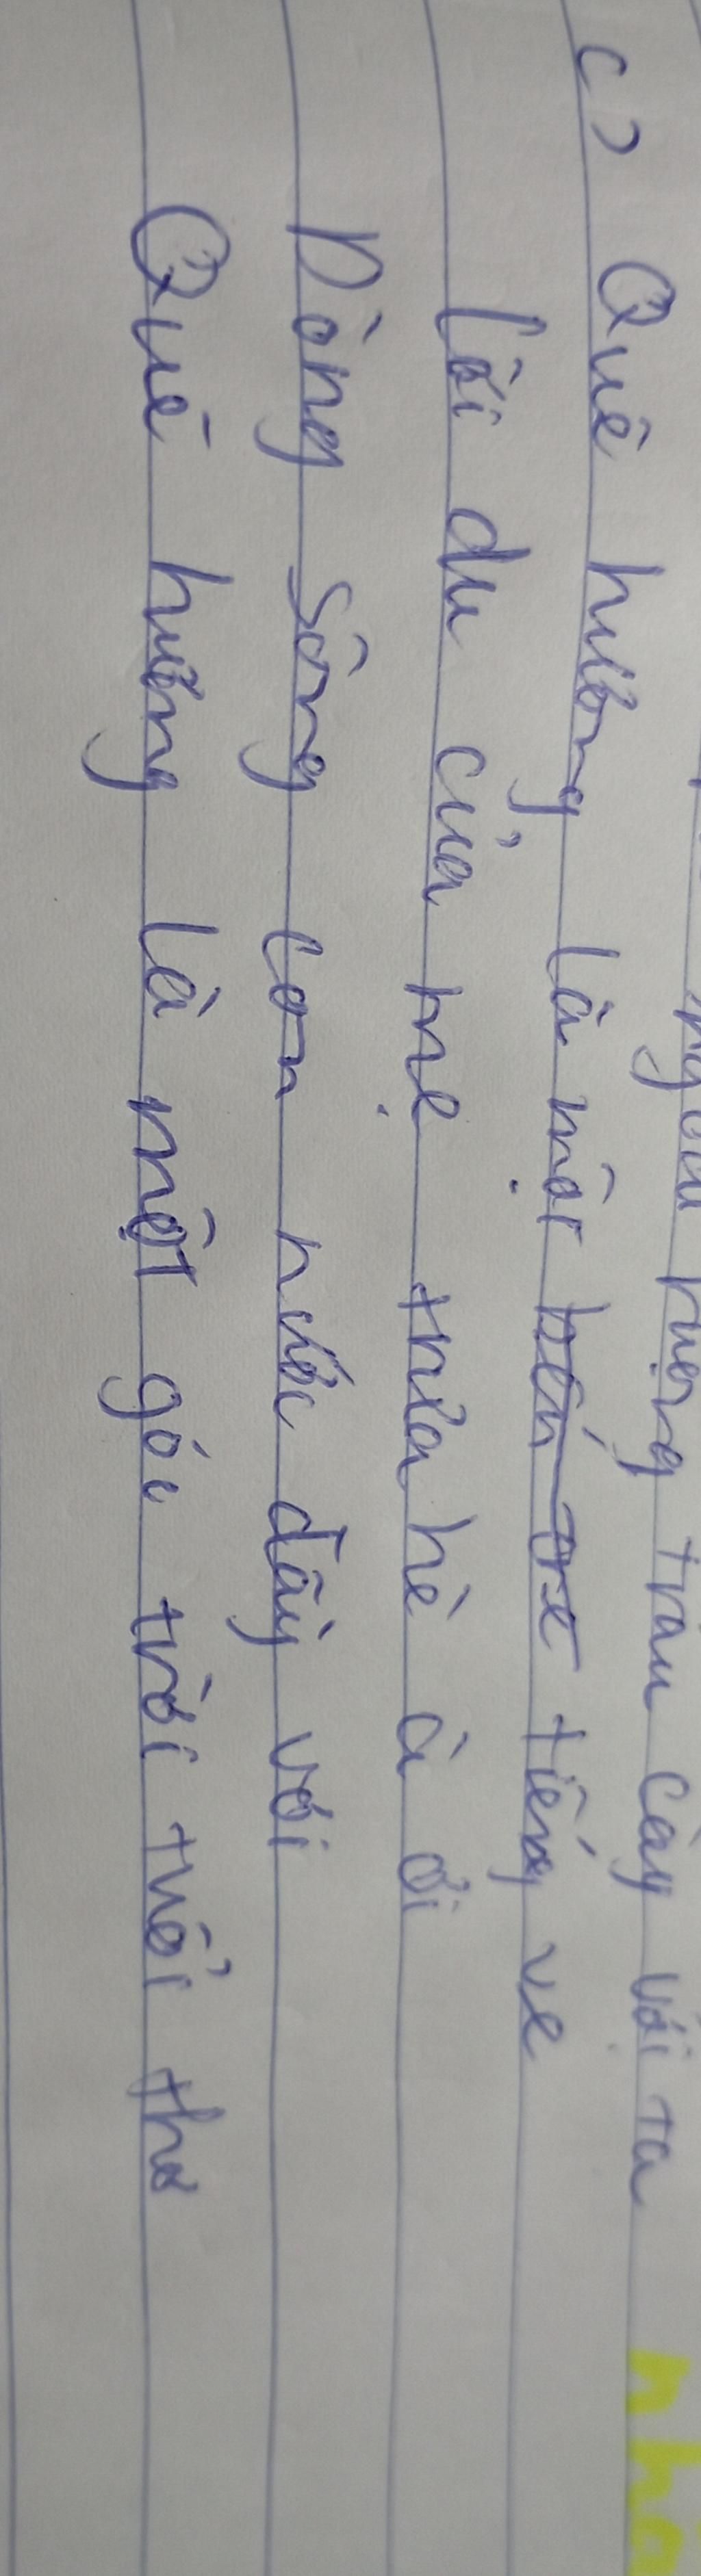 ruộng trâu cày với ta
c) Quê hương là một tiếng ve
Lời du của mẹ trưa hè à ơi
Dòng sông con nước đầy vơi
Quê hương là một góc trời tuổi thơ